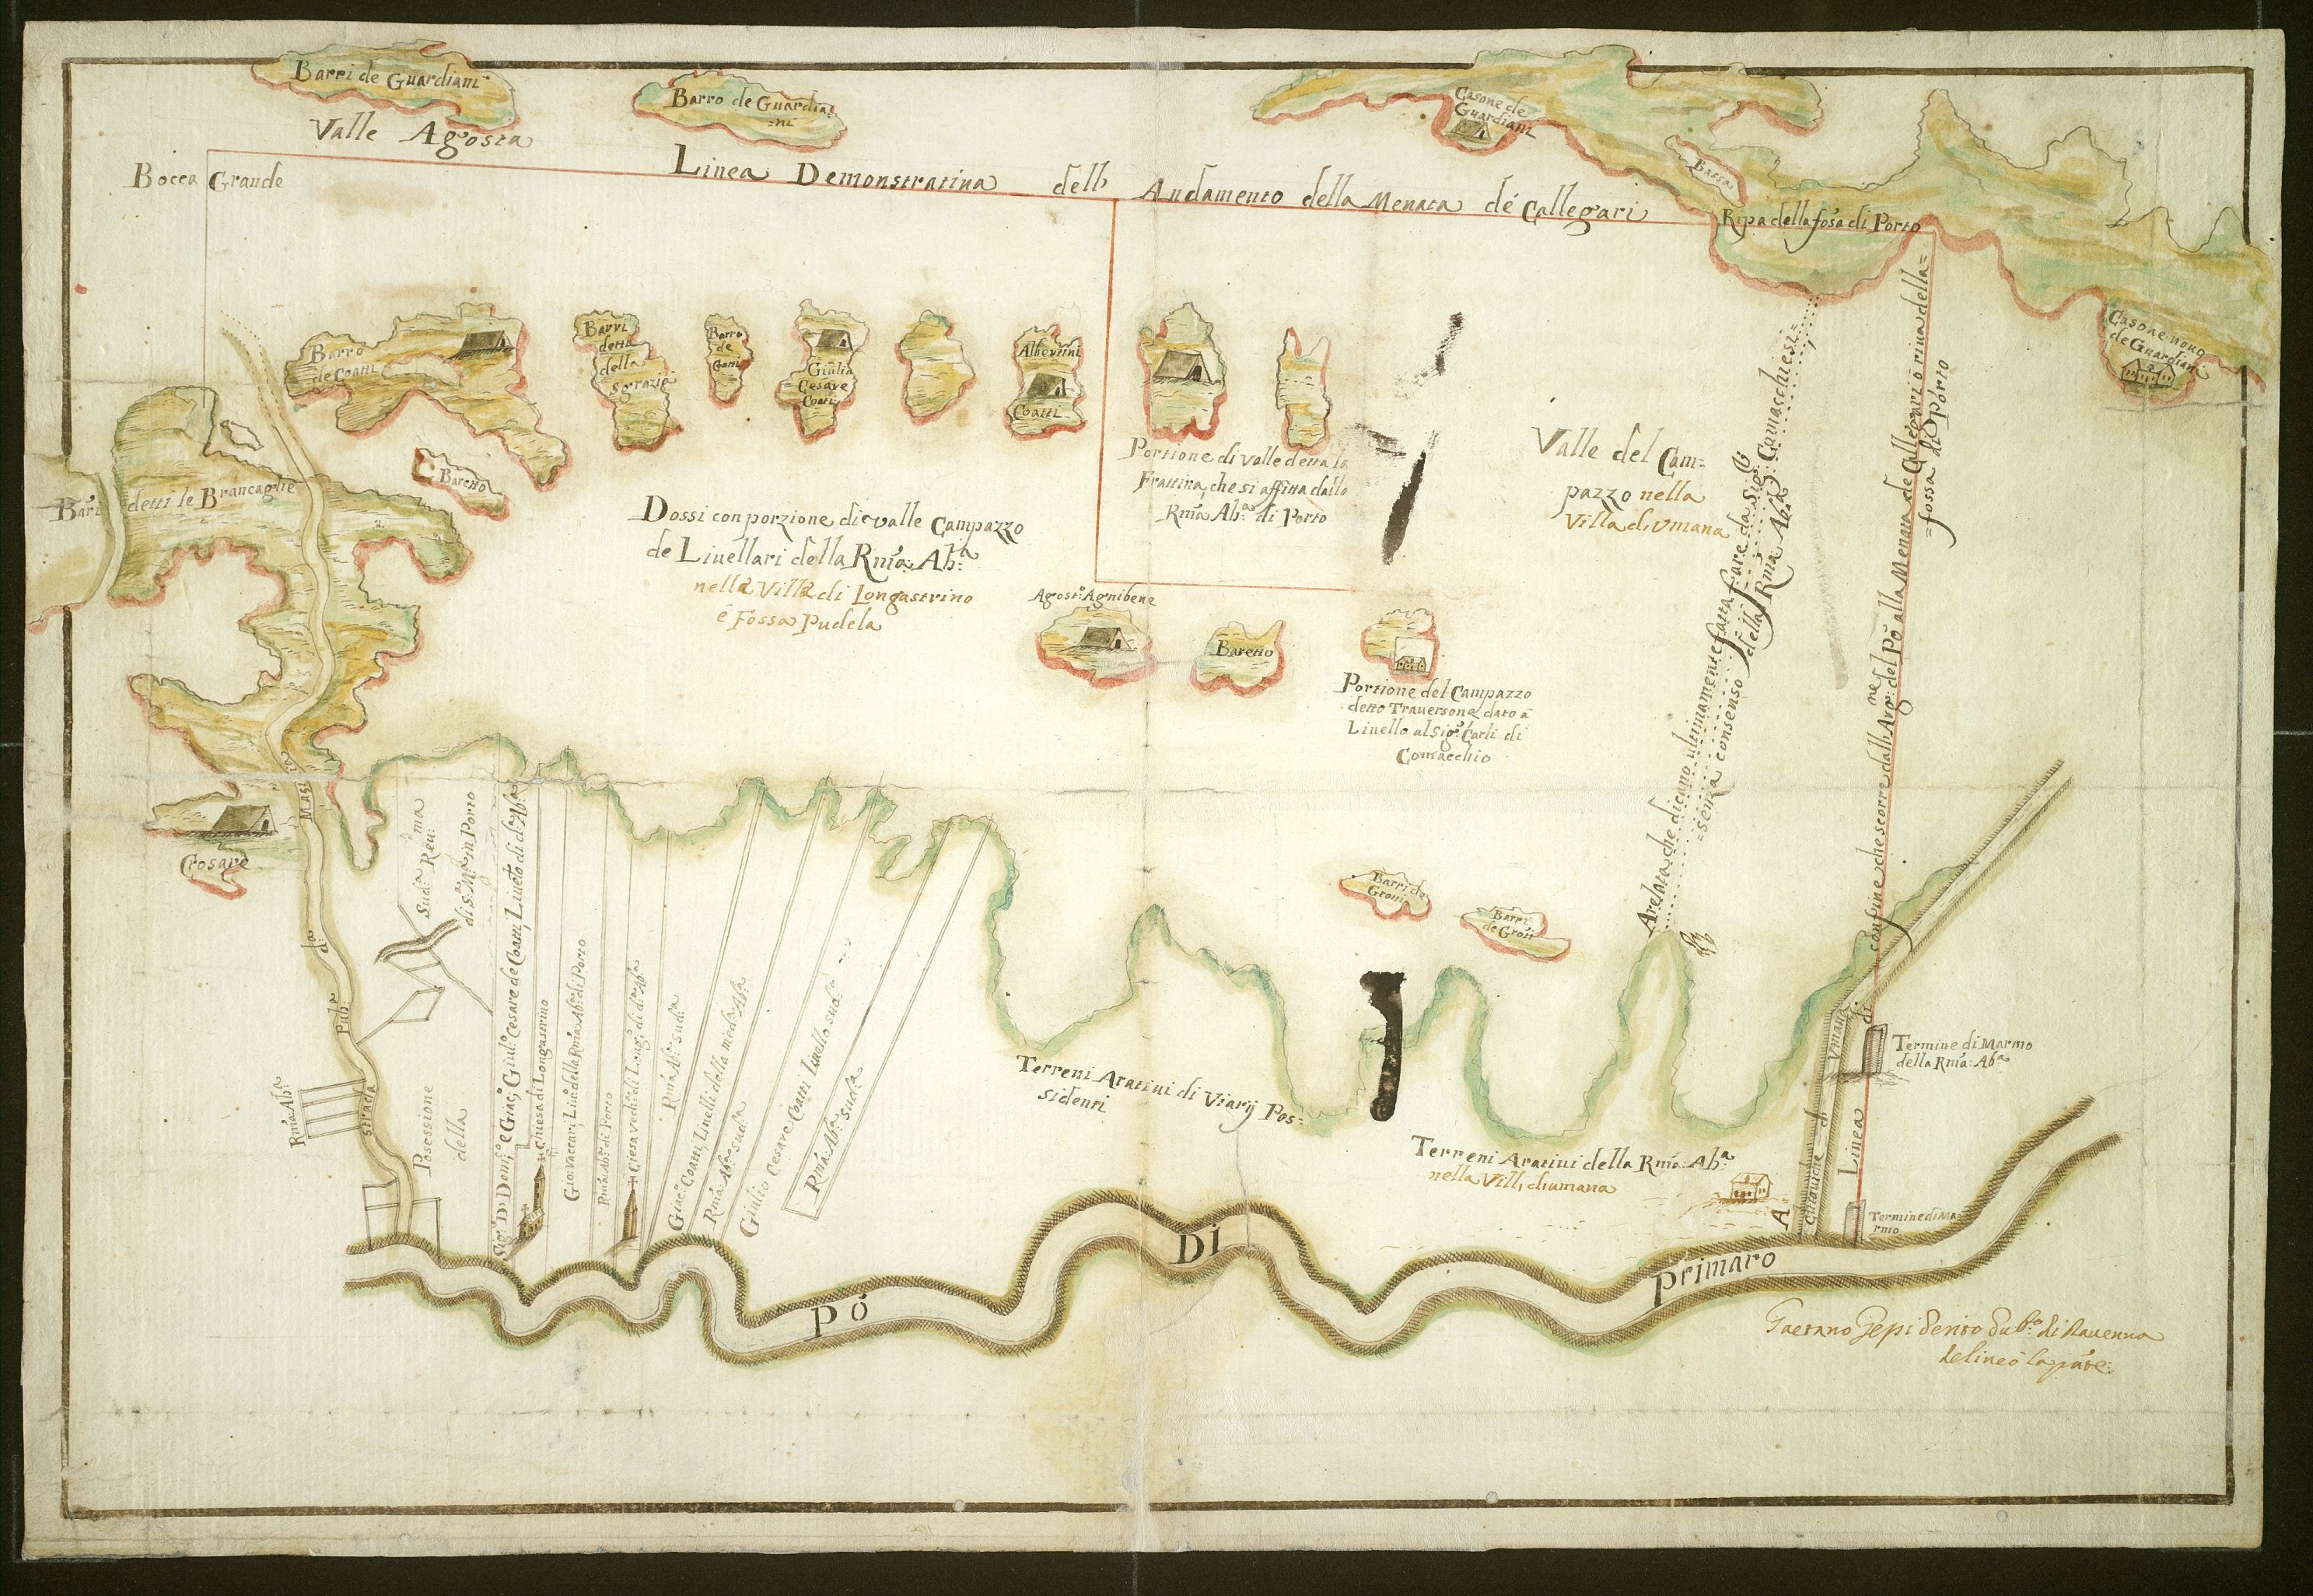 Barri de Guardiani
Barro de Guardia=
=ni
Casone de
Guardiani
Valle Agosta
Bassa
Bocca Grande
Linea Demonstratiua dell' Andamento della Menata dé Callegari
Ripa della fosa di Porto
Casone nouo
de Guardiani
Barro
de Coatti
Barri
detti
della
Barro
de
Coatti
Giulio
Cesare
Coatti
Albertini
Coatti
Baretto
Bari detti le Brancaglie
Portione di valle detta la
Frattina, che si affitta dalla
Rm̃a Ab:ª di Porto
Valle del Cam=
pazzo nella
Villa d'umana
Dossi con porzione di valle Campazzo
de Liuellari della Rm̃a Ab:ª
nella Villa di Longastrino
é Fossa Pudela
Agost:º Agnibene
Baretto
Portione del Campazzo
detto Trauersone dato á
Liuello al Sig:r Carli di
Comacchio
Arelata che dicano ultimamente fatta fare da Sig:ri Comacchiesi=
=senza consenso della Rm̃a Ab:ª
Linea di confine che scorre dall' Arg:ne del Pó alla Menata de Callegari ó riua della=
=fossa di Porto
Crosare
Sud:ª Reu:ma
di S:ª M:ª in Porto
Barri de
Barri
Strada Pub:ª d:ª
Rm̃a Ab:ª
Posessione
della
Sig:r D: Dom:co e Giac:º Giul:º Cesare de Coatti, Liuello di d:ª Ab:ª
Chiesa di Longastrino
Gio: Vaccari Liu:º della Rm̃a Ab:ª di Porto
Rm̃a Ab:ª di Porto
Ciesa vechi:ª di Long:º di d:ª Ab:ª
Rm̃a Ab:ª sud:ª
Giac:º Coatti, Liuelli della med:ª Ab:ª
Rm̃a Ab:ª sud:ª
Giulio Cesare Coatti Liuello sud:º
Rm̃a Ab:ª sud:ª
Terreni Aratiui di Varij Pos=
sidenti
Terreni Aratiui della Rm̃a Ab:ª
nella Villa d'umana
A
Chiauiche di Umana
Termine di Marmo
della Rm̃a Ab:ª
Termine di Ma=
rmo
Pó Di Primaro
Gaetano Gepi Perito Pub:º di Rauenna
delineó la pn̄te: